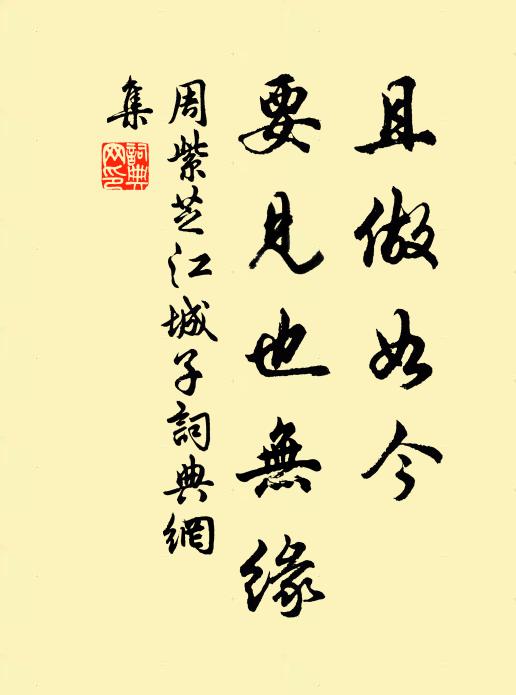 且做如今
要見也無緣
周紫芝江城子詞典網
集
詞典
网印